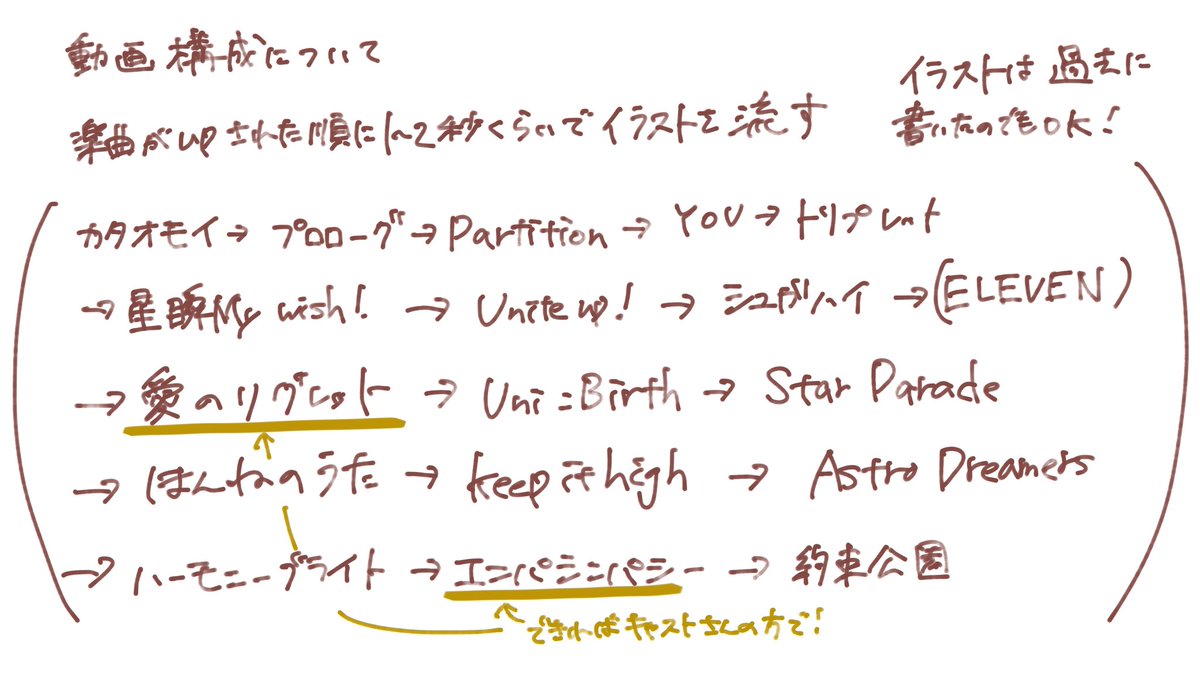 動画構成について
イラストは過去に
書いたのでもOK!
楽曲がupされた順に1~2秒くらいでイラストを流す
カタオモイ→プロローグ→Partition→YOU→トリプレット
→星瞬My wish!→Unite up!→シュガハイ→(ELEVEN)
→愛のリグレット→Uni:Birth→Star Parade
→ほんねのうた→keep it high→Astro Dreamers
→ハーモニーブライト→エンパシンパシー→約束公園
できればキャストさんの方で!